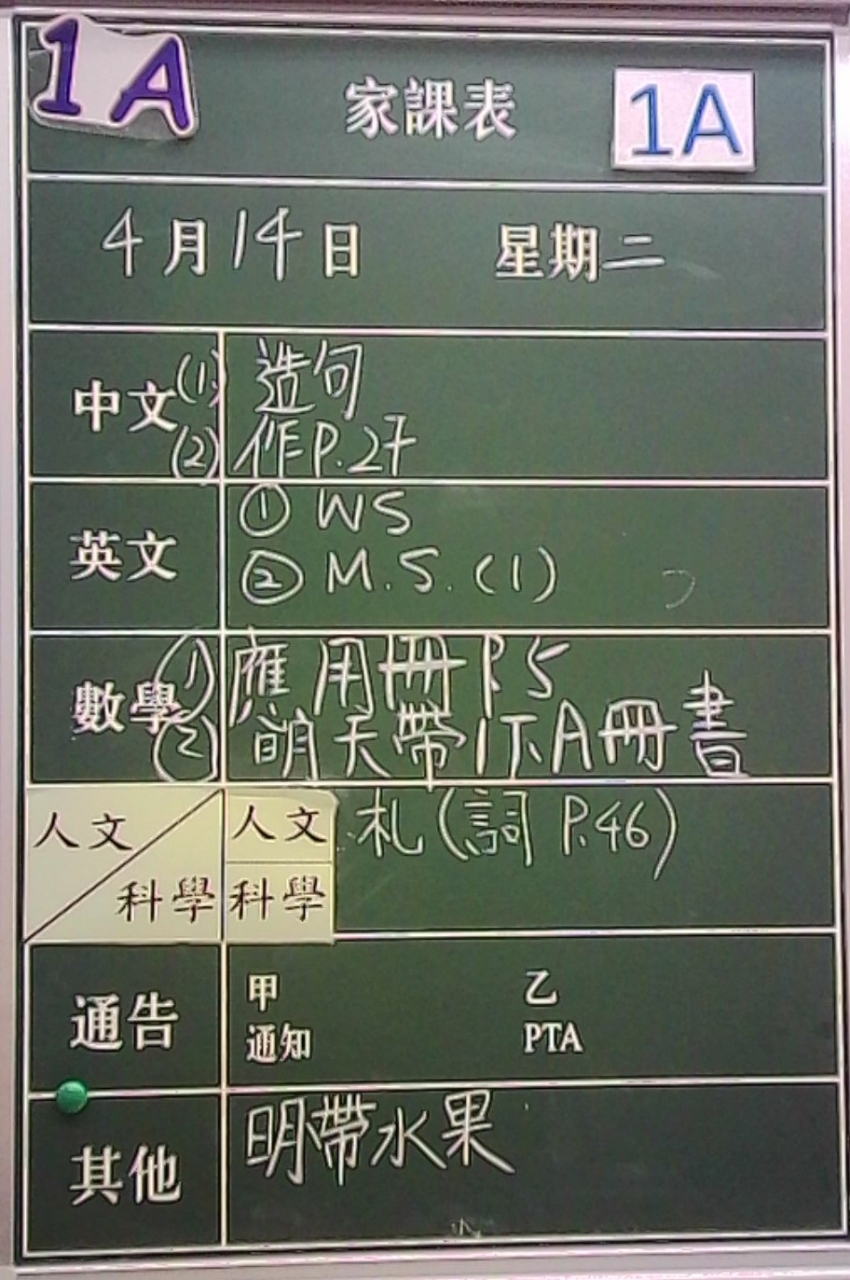 1A
家課表
1A
4月14日 星期二
中文
(1) 造句
(2) 作P.27
英文
① WS
② M.S.(1)
數學
(1) 應用冊P.5
(2) 明天帶1下A冊書
人文
科學
人文 札(詞 P.46)
科學
通告
甲 乙
通知 PTA
其他
明帶水果